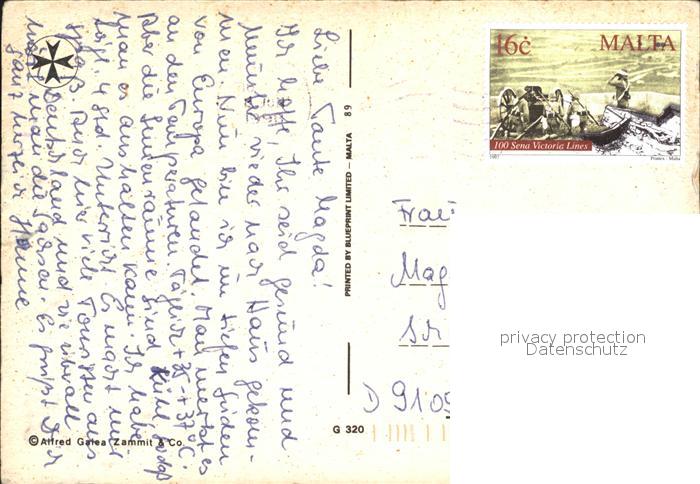 Liebe Tante Magda!
Ich hoffe, Ihr seid gesund und
munter wieder nach Haus gekom-
men. Nun bin ich im tiefen Süden
von Europa gelandet. Man merkt es
an den Temperaturen. Täglich +35 - +37°C.
Aber die Innenräume sind kühl sodaß
man es aushalten kann. Ich habe
tägl. 4 Std Unterricht. Es macht mir
Spaß. Auch hier viele Touristen aus
Deutschland und wie überall
man die Sachsen. Es grüßt Dich
ganz herzlich Hanne
© Alfred Galea Zammit & Co.
PRINTED BY BLUEPRINT LIMITED – MALTA 89
G 320
16c MALTA
100 Sena Victoria Lines
1997 Printex - Malta
Frau
Mag
D 9109
privacy protection
Datenschutz